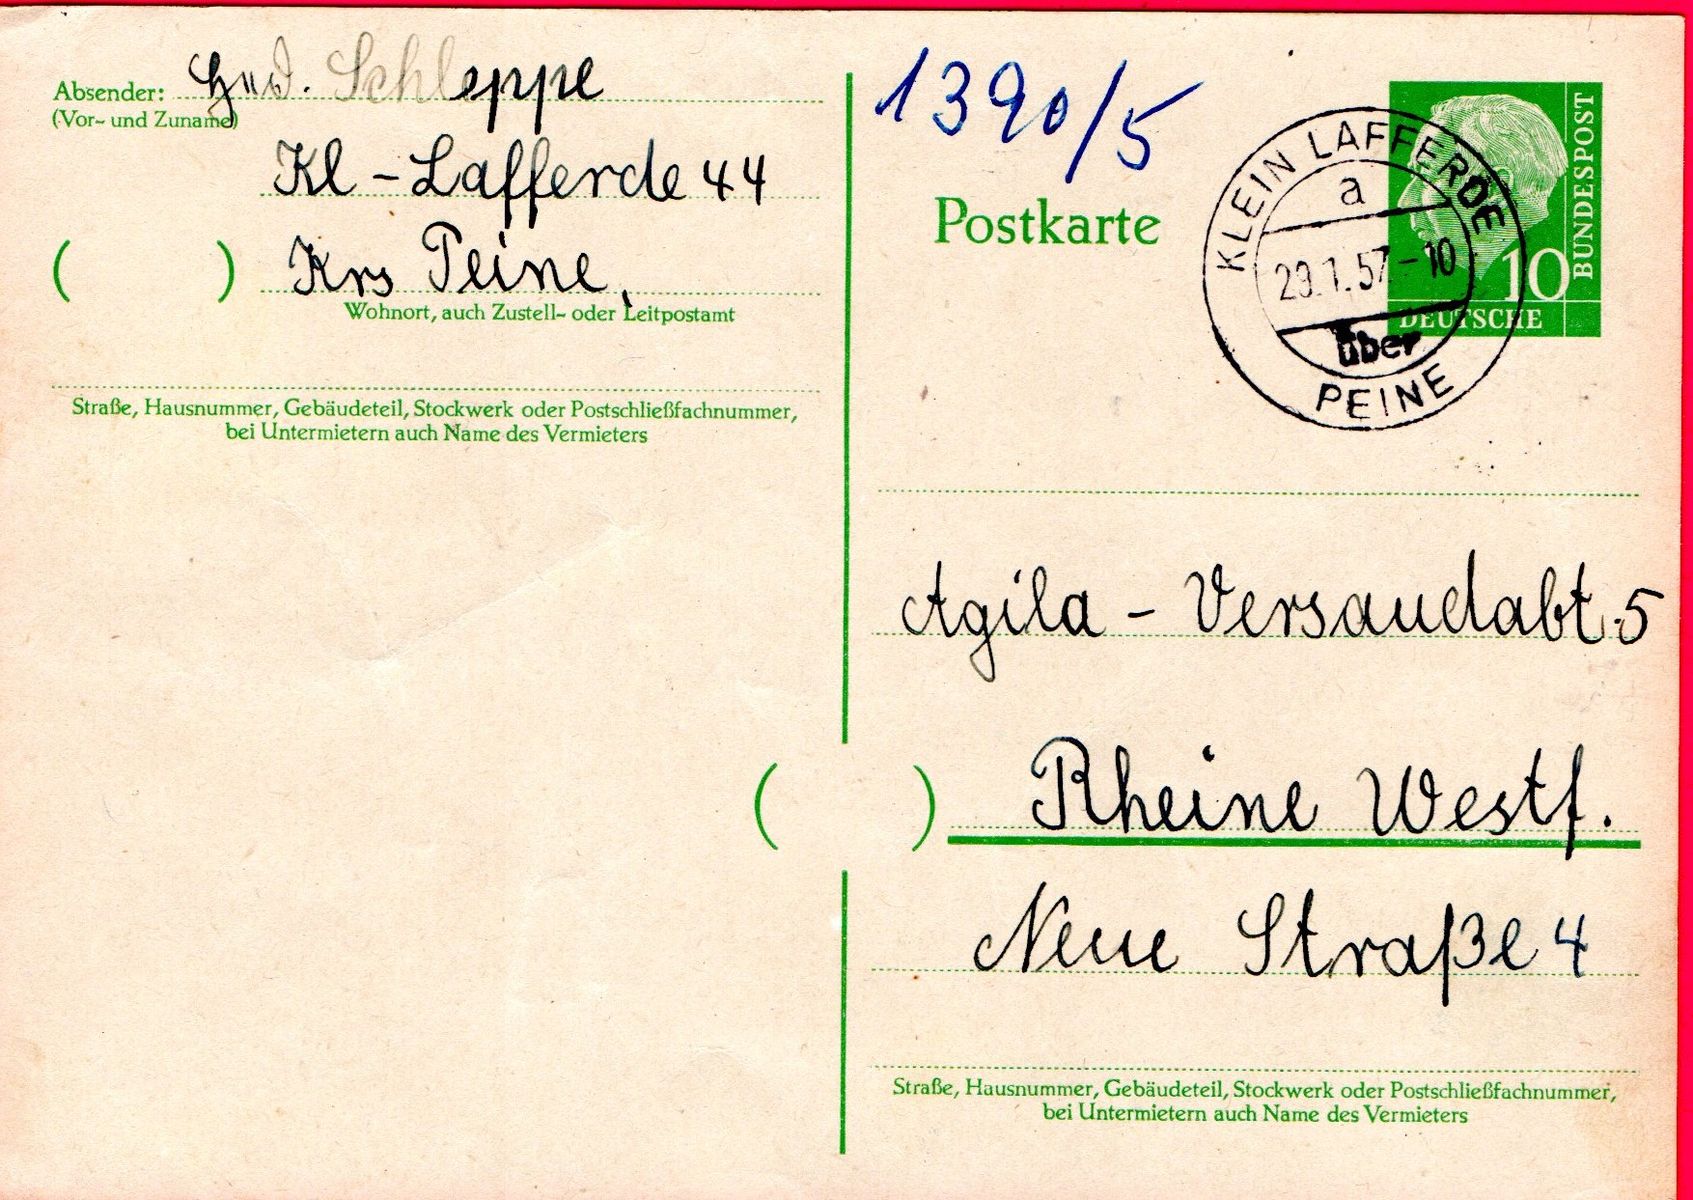 Absender: Schleppe
(Vor- und Zuname)
Kl - Lafferde 44
( ) Krs Peine,
Wohnort, auch Zustell- oder Leitpostamt
Straße, Hausnummer, Gebäudeteil, Stockwerk oder Postschließfachnummer,
bei Untermietern auch Name des Vermieters
1390/5
Postkarte
KLEIN LAFFERDE
a
29.1.57-10
über
PEINE
10
DEUTSCHE
BUNDESPOST
Agila - Versandabt. 5
( ) Rheine Westf.
Neue Straße 4
Straße, Hausnummer, Gebäudeteil, Stockwerk oder Postschließfachnummer,
bei Untermietern auch Name des Vermieters